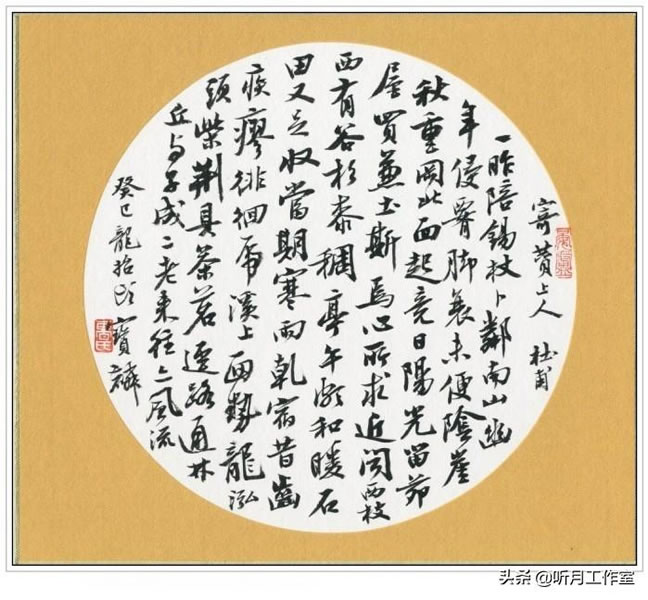 寄贊上人 杜甫
一昨陪錫杖卜鄰南山幽
年侵腰脚衰未便陰崖
秋重岡北面起竟日陽光留茆
屋買兼土斯焉心所求近闻西枝
西有谷杉黍稠亭午頗和暖石
田又足收當期寒雨乾宿昔齒
疾瘳徘徊虎溪上面勢龍泓
頭柴荆具茶茗逕路通林
丘与子成二老来往亦風流
癸巳龍抬頭寶麟
头条 @听月工作室